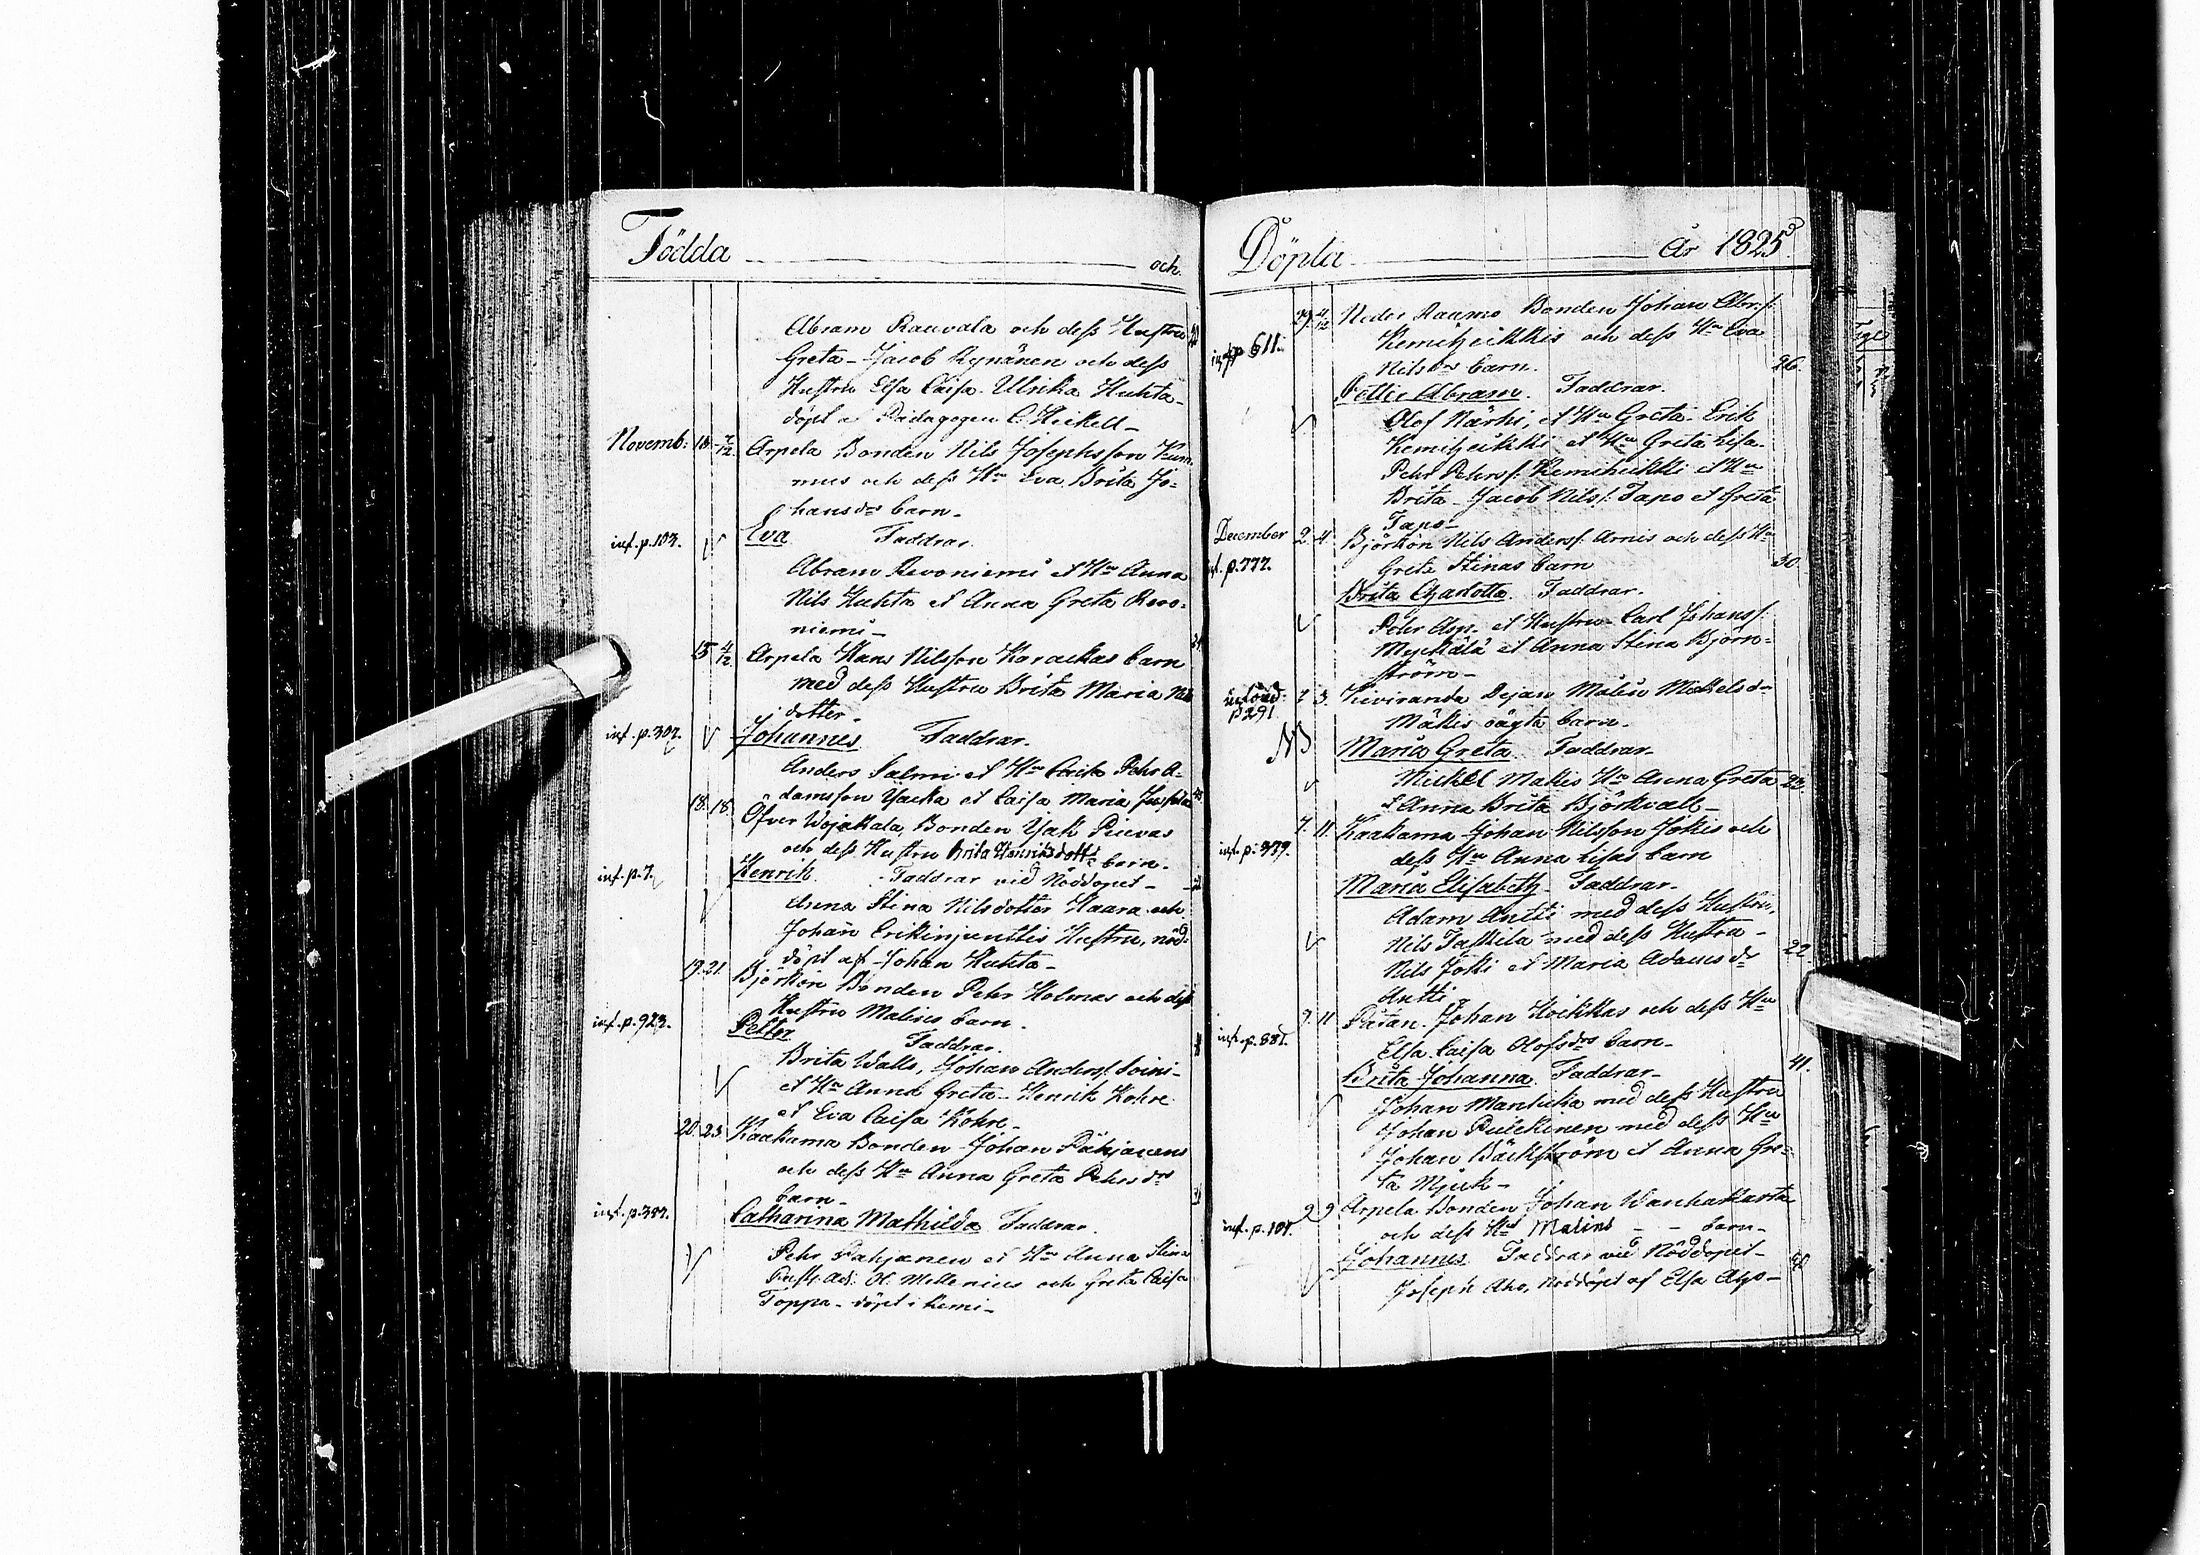 Födda och
Abram Rauvala och dess Hustru
Greta - Jacob Rynänen och dess
Hustru Elsa Caisa. Ulrika Huhta -
döpt a Pædagogen C. Heikell -
Novemb: 13 7/12 Arpela Bonden Nils Josephsson Kum-
mus och dess Hu Eva Brita Jo-
hansdrs barn.
inf. p. 103. Eva Faddrar.
Abram Revoniemi et Hu Anna
Nils Huhta et Anna Greta Revo-
niemi -
15 4/12 Arpela Hans Nilsson Karackas barn
med dess Hustru Brita Maria Nils
dotter.
inf. p. 307. Johannes Faddrar.
Anders Salmi et Hu Caisa Pehr A-
damsson Yacka et Caisa Maria
18. 18. Öfver Wojakkala, Bonden Isak Pievas
och dess Hustru Brita Henriksdotts barn.
inf. p. 7. Henrik Faddrar vid Nöddopet -
Anna Stina Nilsdotter Haara och
Johan Erikinjunttis Hustru, nöd-
döpt af Johan Huhta -
19. 21. Björkön Bonden Pehr Holmas och dess
Hustru Malins barn.
inf. p. 923. Petter Faddrar.
Brita Walls, Johan Anders: Soini -
et Hu Anna Greta - Henrik Kohre
et Eva Caisa Kohre -
20. 23. Kaakama Bonden Johan Pähjänens
och dess Hu Anna Greta Pehrsdrs
barn -
inf. p. 387. Catharina Mathilda Faddrar.
Pehr Pahjanen et Hu Anna Stina
Past. Adj. Ol. Mellenius och Greta Caisa
Toppa - döpt i Kemi -
Döpta År 1825
29. 4/12 Neder Raumo Bonden Johan Abrs:
inf. p. 611. Kemiheikkis och dess Hu Eva
Nilsdrs barn. 26.
Petter Abram. Faddrar.
Olof Närhi, et Hu Greta. Erik
Kemiheikki et Hu Greta Lisa.
Pehr Pehrss: Kemiheikki et Hu
Brita - Jacob Nils: Tapo et Greta
Tapo -
December 2. 4. Björkön Nils Anders: Arnis och dess Hu
inf. p. 777. Greta Stinas barn 30.
Brita Charlotta. Faddrar.
Pehr Asp. et Hustru - Carl Johans:
Myckälä et Anna Stina Björn-
ström -
inf. oäd: p 291 2 3. Kiviranda Dejan Malin Mickelsdr
Mäkis oägta barn.
NB Maria Greta Faddrar -
Mickel Mäkis Hu Anna Greta 22.
et Anna Brita Björkvall -
7. 11. Kaakama Johan Nilsson Jokis och
inf. p. 379. dess Hu Anna Lisas barn
Maria Elisabeth - Faddrar -
Adam Antti med dess Hustru,
Nils Taskila med dess Hustru -
Nils Joki et Maria Adamsdr 22.
Antti
9. 11 Paran. Johan Hoikkas och dess Hu
inf. p. 887. Elsa Caisa Olofsdrs barn -
Brita Johanna. Faddrar - 41.
Johan Manlicka med dess Hustru
Johan Pulckinen med dess Hu
Johan Bäckström et Anna Gre-
ta Mjuk -
9 9 Arpela Bonden Johan Wanhakarta
inf. p. 101. och dess Hu Malins - - barn -
Johannes Faddrar vid Nöddopet -
Joseph Aho, Nöddöpt af Elsa Aho -